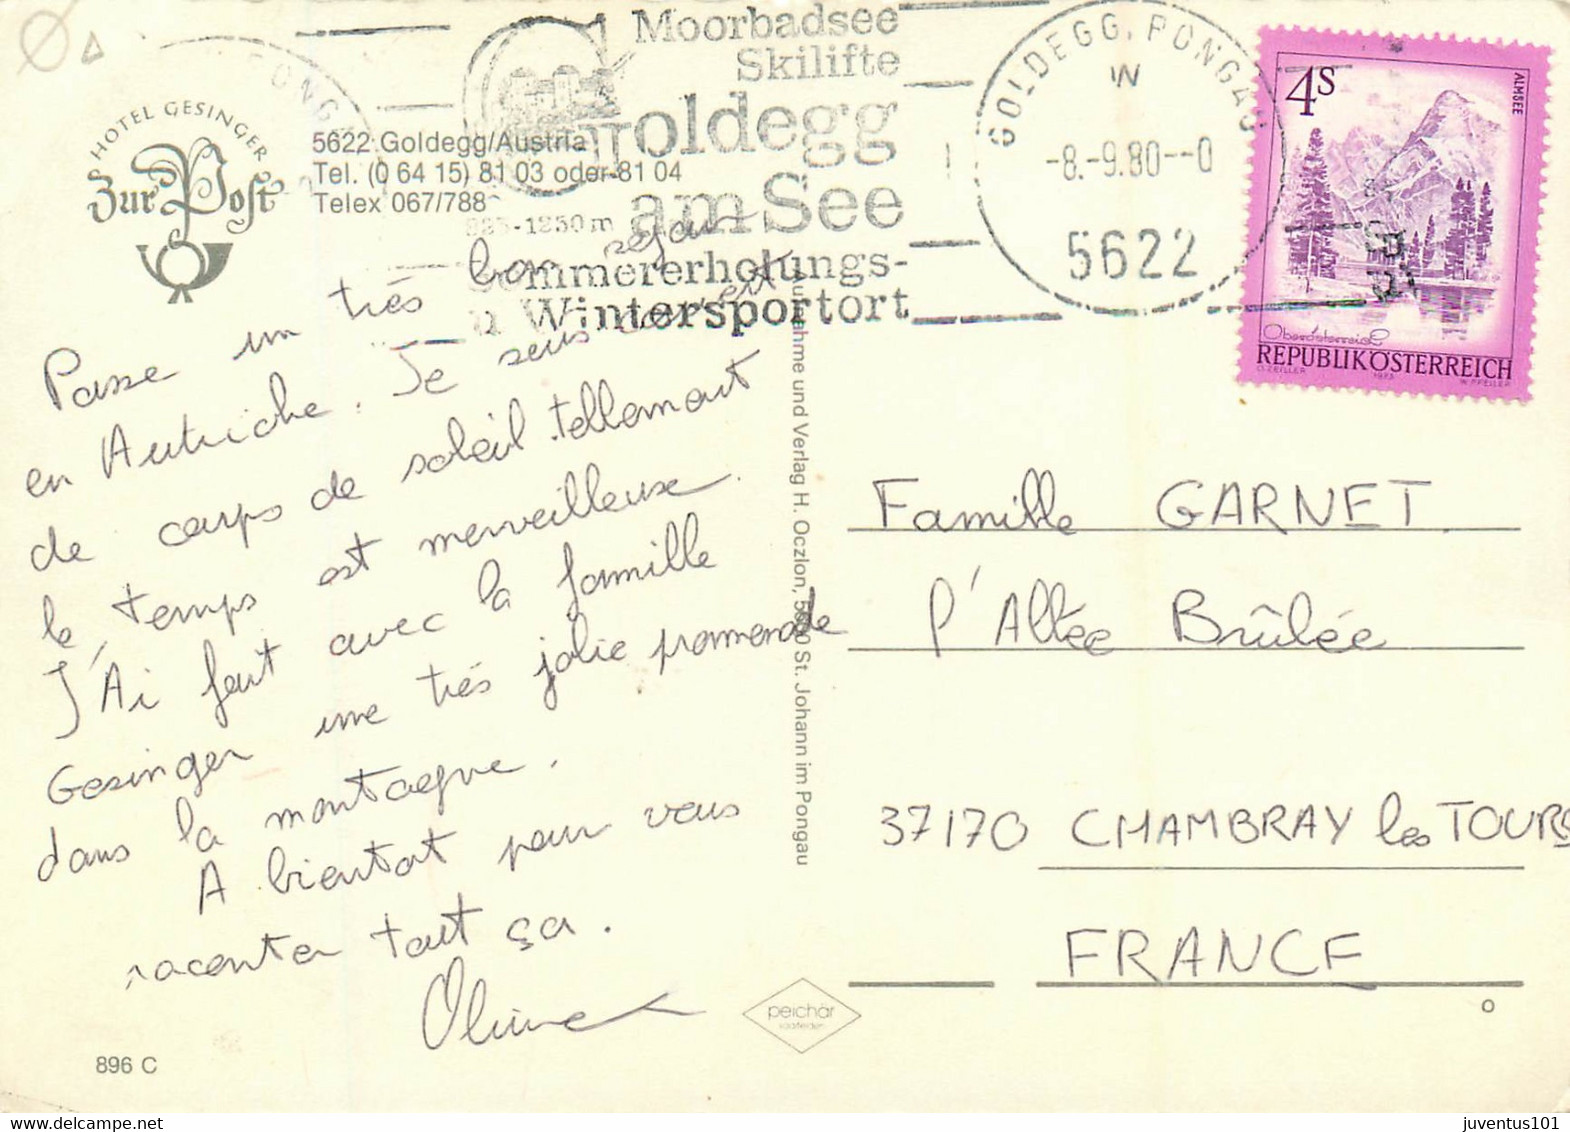 HOTEL GESINGER
Zur Post
5622 Goldegg/Austria
Tel. (0 64 15) 81 03 oder 81 04
Telex 067/788
Moorbadsee
Skilifte
Goldegg
am See
825-1250 m
Sommererholungs-
u Wintersportort
GOLDEGG, PONGAU
W
-8.-9.80--0
5622
4S
ALMSEE
Oberösterreich
REPUBLIK ÖSTERREICH
O. ZEILLER 1973 W. PFEILER
Passe un très bon séjour
en Autriche. Je suis couvert
de coups de soleil tellement
le temps est merveilleuse.
J'Ai fait avec la famille
Gesinger une très jolie promenade
dans la montagne.
A bientôt pour vous
raconter tout ça.
Olivier
Aufnahme und Verlag H. Oczlon, 5600 St. Johann im Pongau
Famille GARNET
l'Allée Brûlée
37170 CHAMBRAY les TOURS
FRANCE
peichär
saalfelden
896 C
juventus101